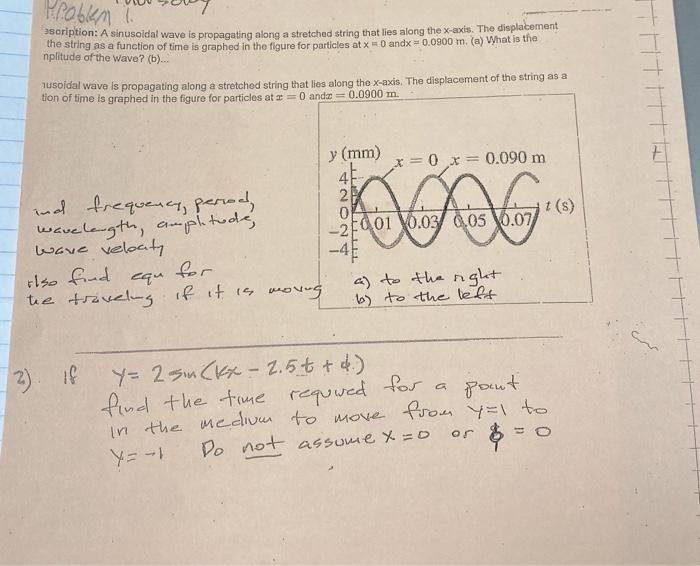 Problem 1.
scription: A sinusoidal wave is propagating along a stretched string that lies along the x-axis. The displacement
the string as a function of time is graphed in the figure for particles at x = 0 andx = 0.0900 m. (a) What is the
nplitude of the wave? (b)...
nusoidal wave is propagating along a stretched string that lies along the x-axis. The displacement of the string as a
tion of time is graphed in the figure for particles at x = 0 andx = 0.0900 m.
y (mm) x = 0 x = 0.090 m
4
2
0
-2
-4
0.01 0.03 0.05 0.07 t (s)
ind frequency, period,
wavelength, amplitude,
wave velocity
also find equ for
the traveling if it is moving
a) to the right
b) to the left
2). If y = 2 sin (kx - 2.5t + ϕ)
find the time required for a point
in the medium to move from y=1 to
y=-1 Do not assume x=0 or ϕ = 0